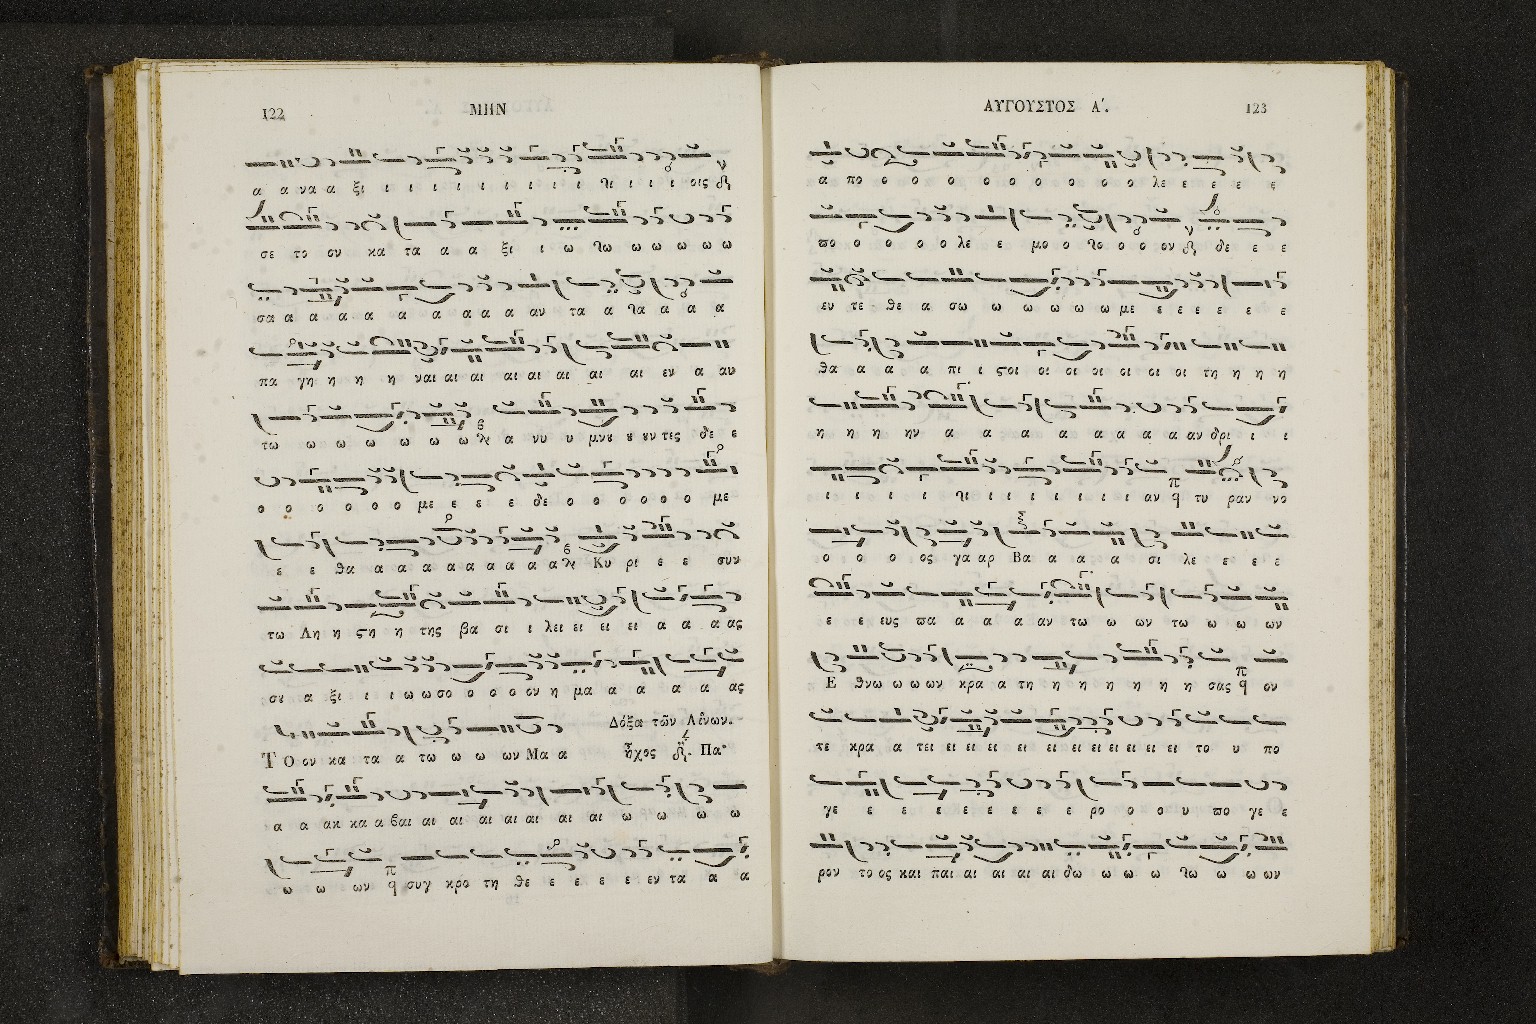 122 ΜΗΝ
α α να α ξι ι ι ι ι ι ι ι ι ι ι ι ι ι οις
σε το ον κα τα α α ξι ι ω ω ω ω ω ω ω
σα α α α α α α α α α αν τα α α α α α
πα γη η η η ναι αι αι αι αι αι αι αι εν α αν
τω ω ω ω ω ω ω α νυ υ μνυ υ υν τες δε ε
ο ο ο ο ο ο με ε ε ε δε ο ο ο ο ο ο με
ε ε θα α α α α α α α α Κυ ρι ε ε συν
τω Λη η ςη η της βα σι ι λει ει ει ει α α α ας
συ α ξι ι ι ω ω σο ο ο ο ον η μα α α α α ας
Δόξα τῶν Αἴνων.
Τ Ο ον κα τα α τω ω ω ων Μα α ἦχος Πα
α α ακ κα α βαι αι αι αι αι αι αι αι ω ω ω ω
ω ω ων συγ κρο τη θε ε ε ε ε εν τα α α
ΑΥΓΟΥΣΤΟΣ Α΄. 123
α πο ο ο ο ο ο ο ο ο ο λε ε ε ε ε
πο ο ο ο ο λε ε μο ο ο ο ο ον δε ε ε
ευ τε θε α σω ω ω ω ω ω με ε ε ε ε ε ε
θα α α α πι ι ςοι οι οι οι οι οι οι οι τη η η η
η η η ην α α α α α α α α α αν δρι ι ι
ι ι ι ι ι ι ι ι ι ι ι ι αν τυ ραν νο
ο ο ο ος γα αρ Βα α α α σι λε ε ε ε
ε ε ευς πα α α α αν τω ω ων τω ω ω ων
Ε θνω ω ω ων κρα α τη η η η η η η σας ον
τε κρα α τει ει ει ει ει ει ει ει ει ει ει το υ πο
γε ε ε ε ε ε ε ε ε ρο ο ο υ πο γε ε
ρον το ος και παι αι αι αι αι δω ω ω ω ω ω ω ων